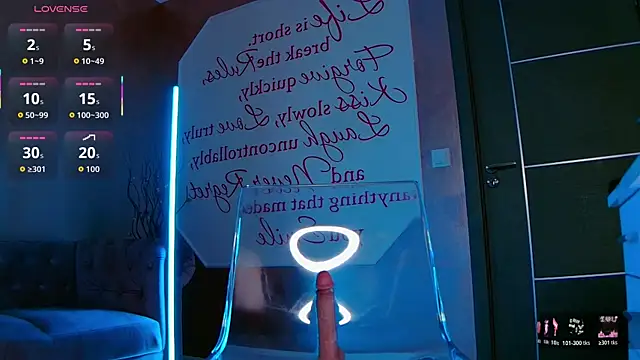 LOVENSE
2s
1~9
5s
10~49
10s
50~99
15s
100~300
30s
≥301
20s
100
Life is short.
break the Rules,
Forgive quickly,
Kiss slowly, Love truly,
Laugh uncontrollably,
and Never Regret
anything that made
you Smile
10s 101-300 tks ≥301 tks